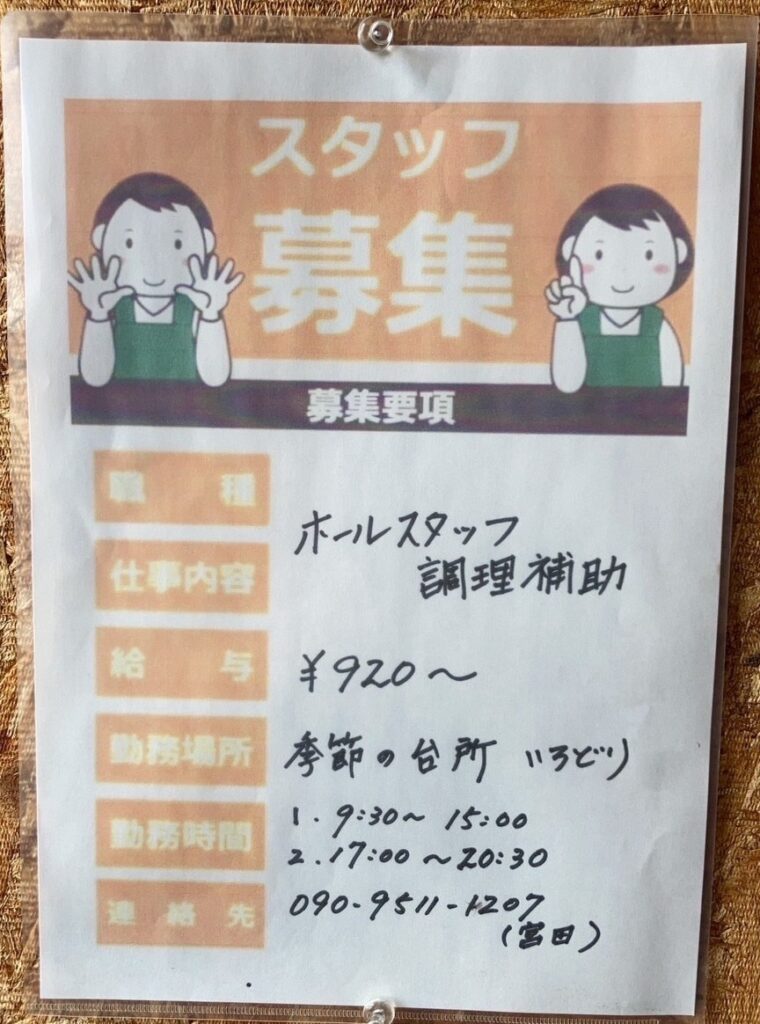 スタッフ
募集
募集要項
職種
ホールスタッフ
仕事内容
調理補助
給与
¥920〜
勤務場所
季節の台所 いろどり
勤務時間
1. 9:30〜 15:00
2. 17:00 〜20:30
連絡先
090-9511-1207
(宮田)